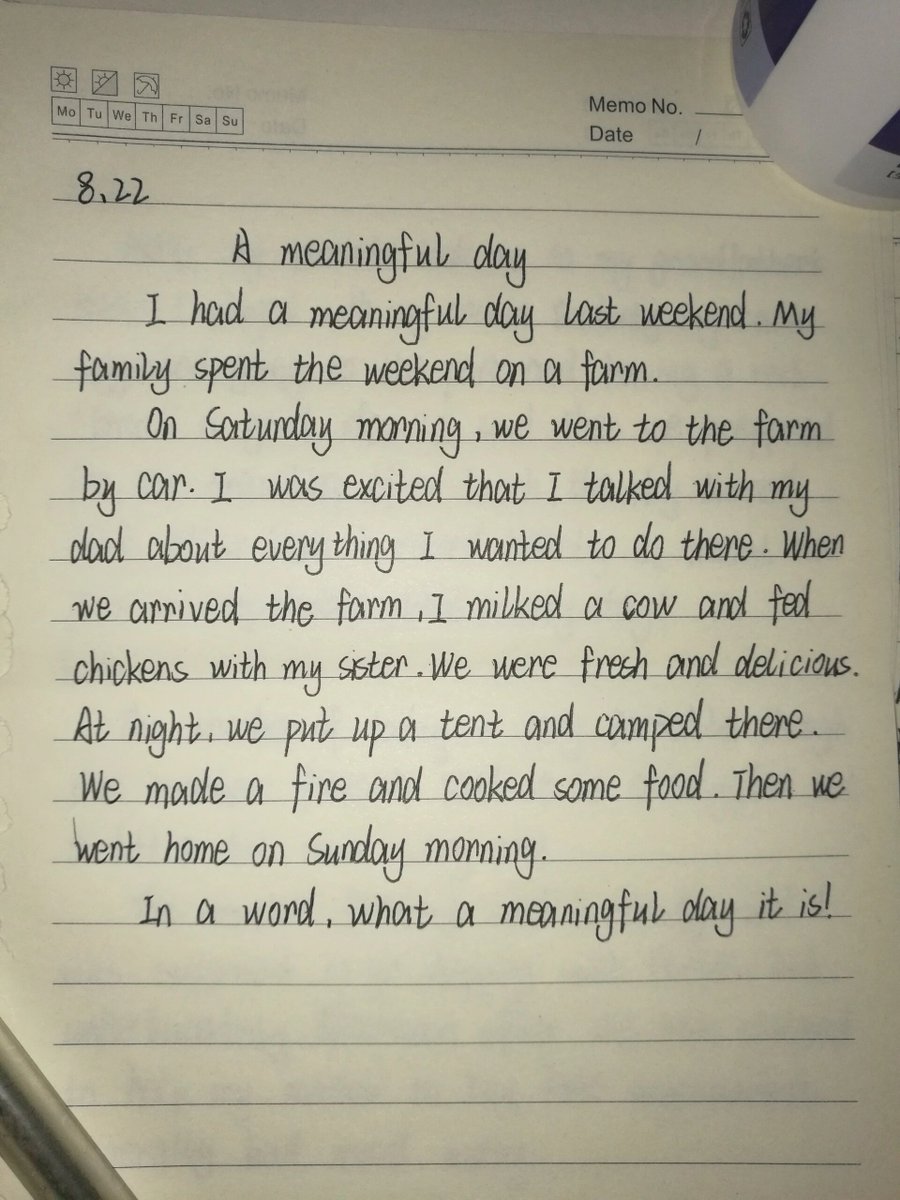 Mo Tu We Th Fr Sa Su
Memo No.
Date /
8.22
A meaningful day
I had a meaningful day last weekend. My
family spent the weekend on a farm.
On Saturday morning, we went to the farm
by car. I was excited that I talked with my
dad about everything I wanted to do there. When
we arrived the farm, I milked a cow and fed
chickens with my sister. We were fresh and delicious.
At night, we put up a tent and camped there.
We made a fire and cooked some food. Then we
went home on Sunday morning.
In a word, what a meaningful day it is!